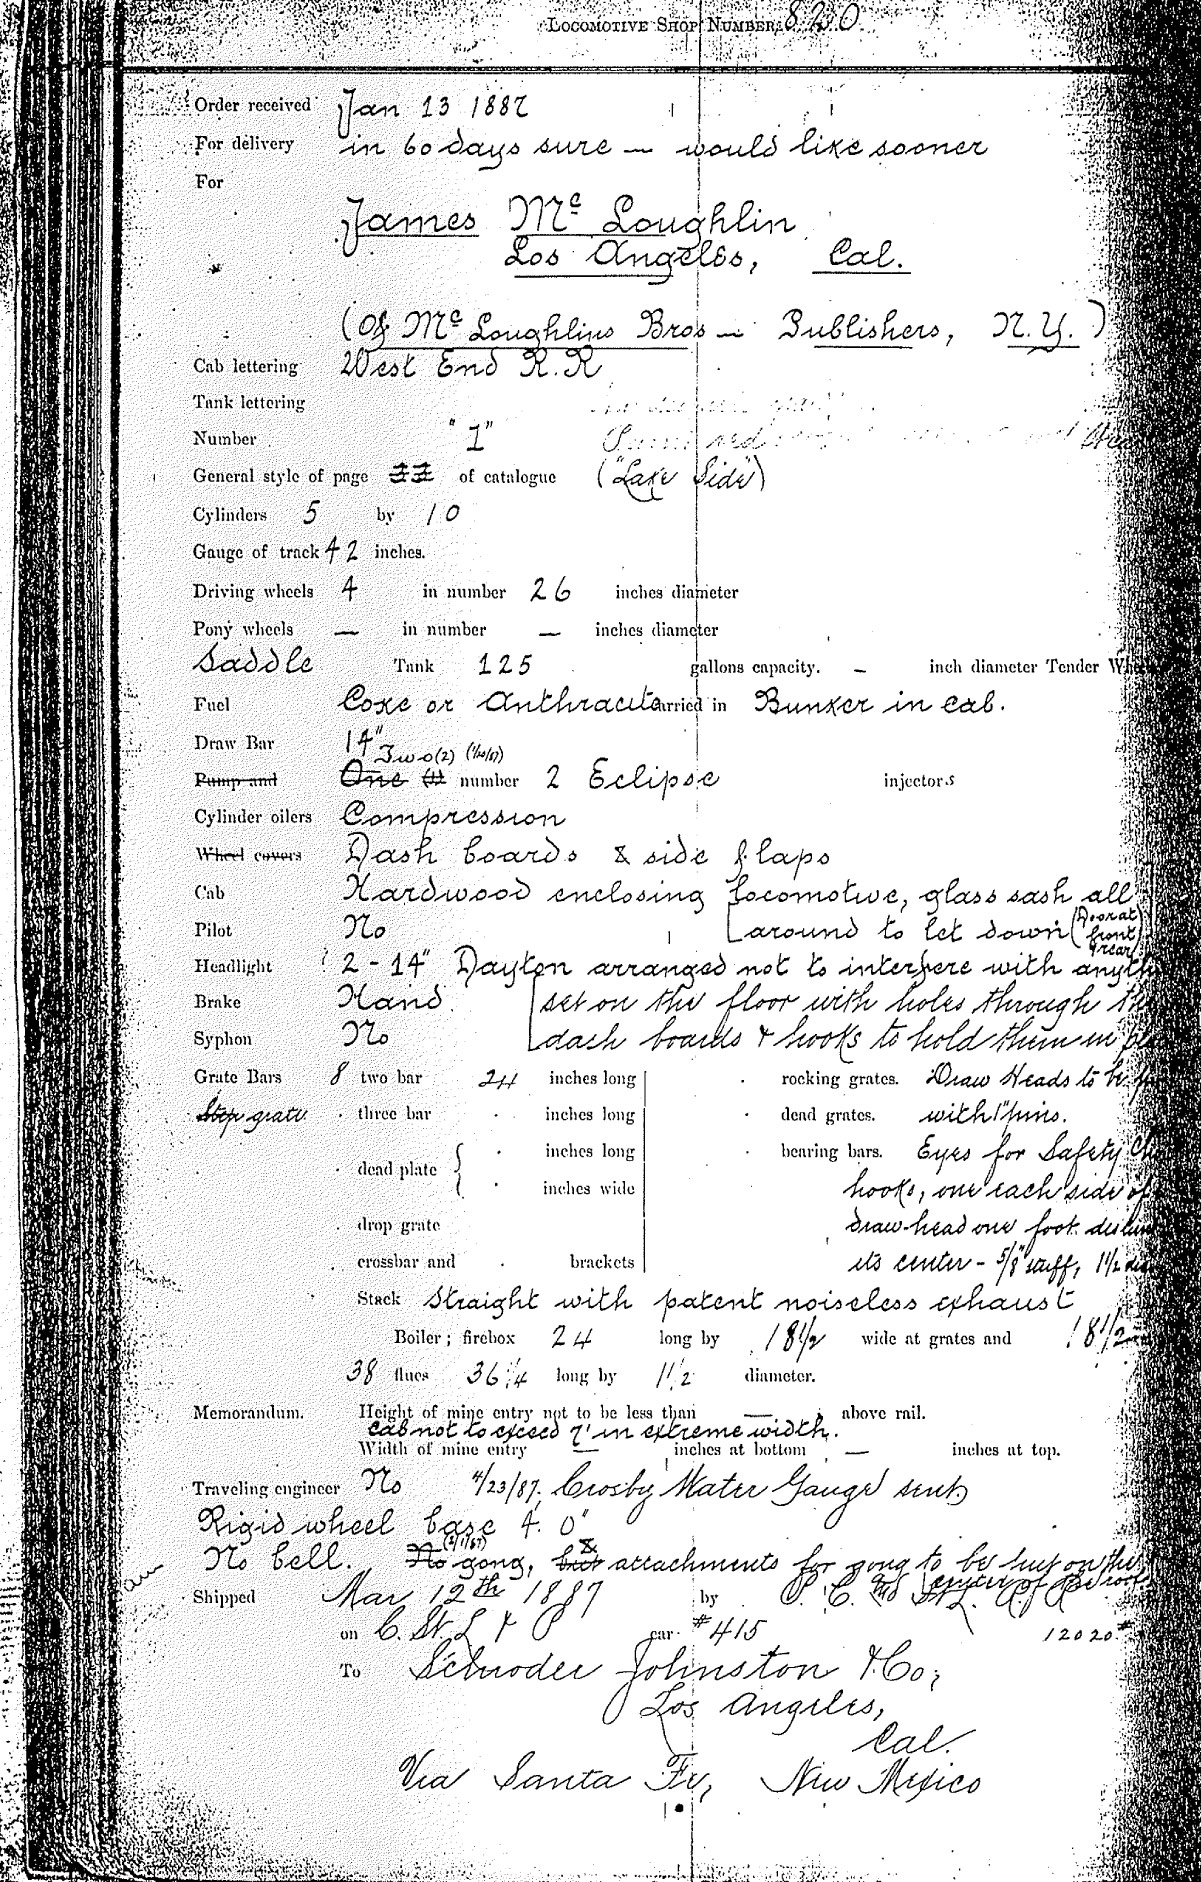 LOCOMOTIVE SHOP NUMBER, 820.
Order received Jan 13 1887
For delivery in 60 days sure — would like sooner
For
James Mc Loughlin
Los Angeles, Cal.
(Of Mc Loughlins Bros — Publishers, N.Y.)
Cab lettering West End R.R
Tank lettering
Number "1"
General style of page of catalogue ("Lake Side")
Cylinders 5 by 10
Gauge of track 42 inches.
Driving wheels 4 in number 26 inches diameter
Pony wheels — in number — inches diameter
Saddle Tank 125 gallons capacity. — inch diameter Tender
Fuel Coke or Anthracite carried in Bunker in cab.
Draw Bar 14"
Two (2) (1/20/87)
Pump and One (1) number 2 Eclipse injectors
Cylinder oilers Compression
Wheel covers Dash boards & side flaps
Cab Hardwood enclosing locomotive, glass sash all
Pilot No around to let down (Door at front & rear)
Headlight 2 - 14" Dayton arranged not to interfere with
Brake Hand set on the floor with holes through
Syphon No dash boards & hooks to hold them in
Grate Bars 8 two bar 24 inches long rocking grates. Draw Heads to be
Step grate three bar inches long dead grates. with 1" pins.
inches long bearing bars. Eyes for Safety
dead plate
inches wide hooks, one each side of
drop grate draw-head one foot
crossbar and brackets its center - 5/8" stuff, 1 1/2
Stack Straight with patent noiseless exhaust
Boiler; firebox 24 long by 18 1/2 wide at grates and 18 1/2
38 flues 36 1/4 long by 1 1/2 diameter.
Memorandum. Height of mine entry not to be less than — above rail.
Cab not to exceed 7' in extreme width.
Width of mine entry — inches at bottom — inches at top.
Traveling engineer No 4/23/87. Crosby Water Gauge sent
Rigid wheel base 4' 0"
No bell. No gong, but & attachments for gong to be put on the
center of the roof
Shipped Mar 12th 1887 by P. C. & St. L. R.R
on C. St. L & P car #415 12020#
To Schroder Johnston & Co,
Los Angeles,
Cal.
Via Santa Fe, New Mexico